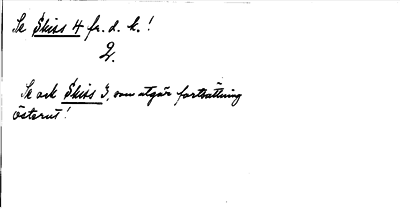 Se Skiss 4 fr. d. k.!
2.
Se ock Skiss 3, som utgör fortsättning
österut!